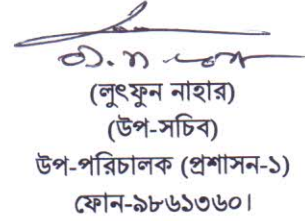 (লুৎফুন নাহার)
(উপ-সচিব)
উপ-পরিচালক (প্রশাসন-১)
ফোন-৯৮৬১৩৬০।